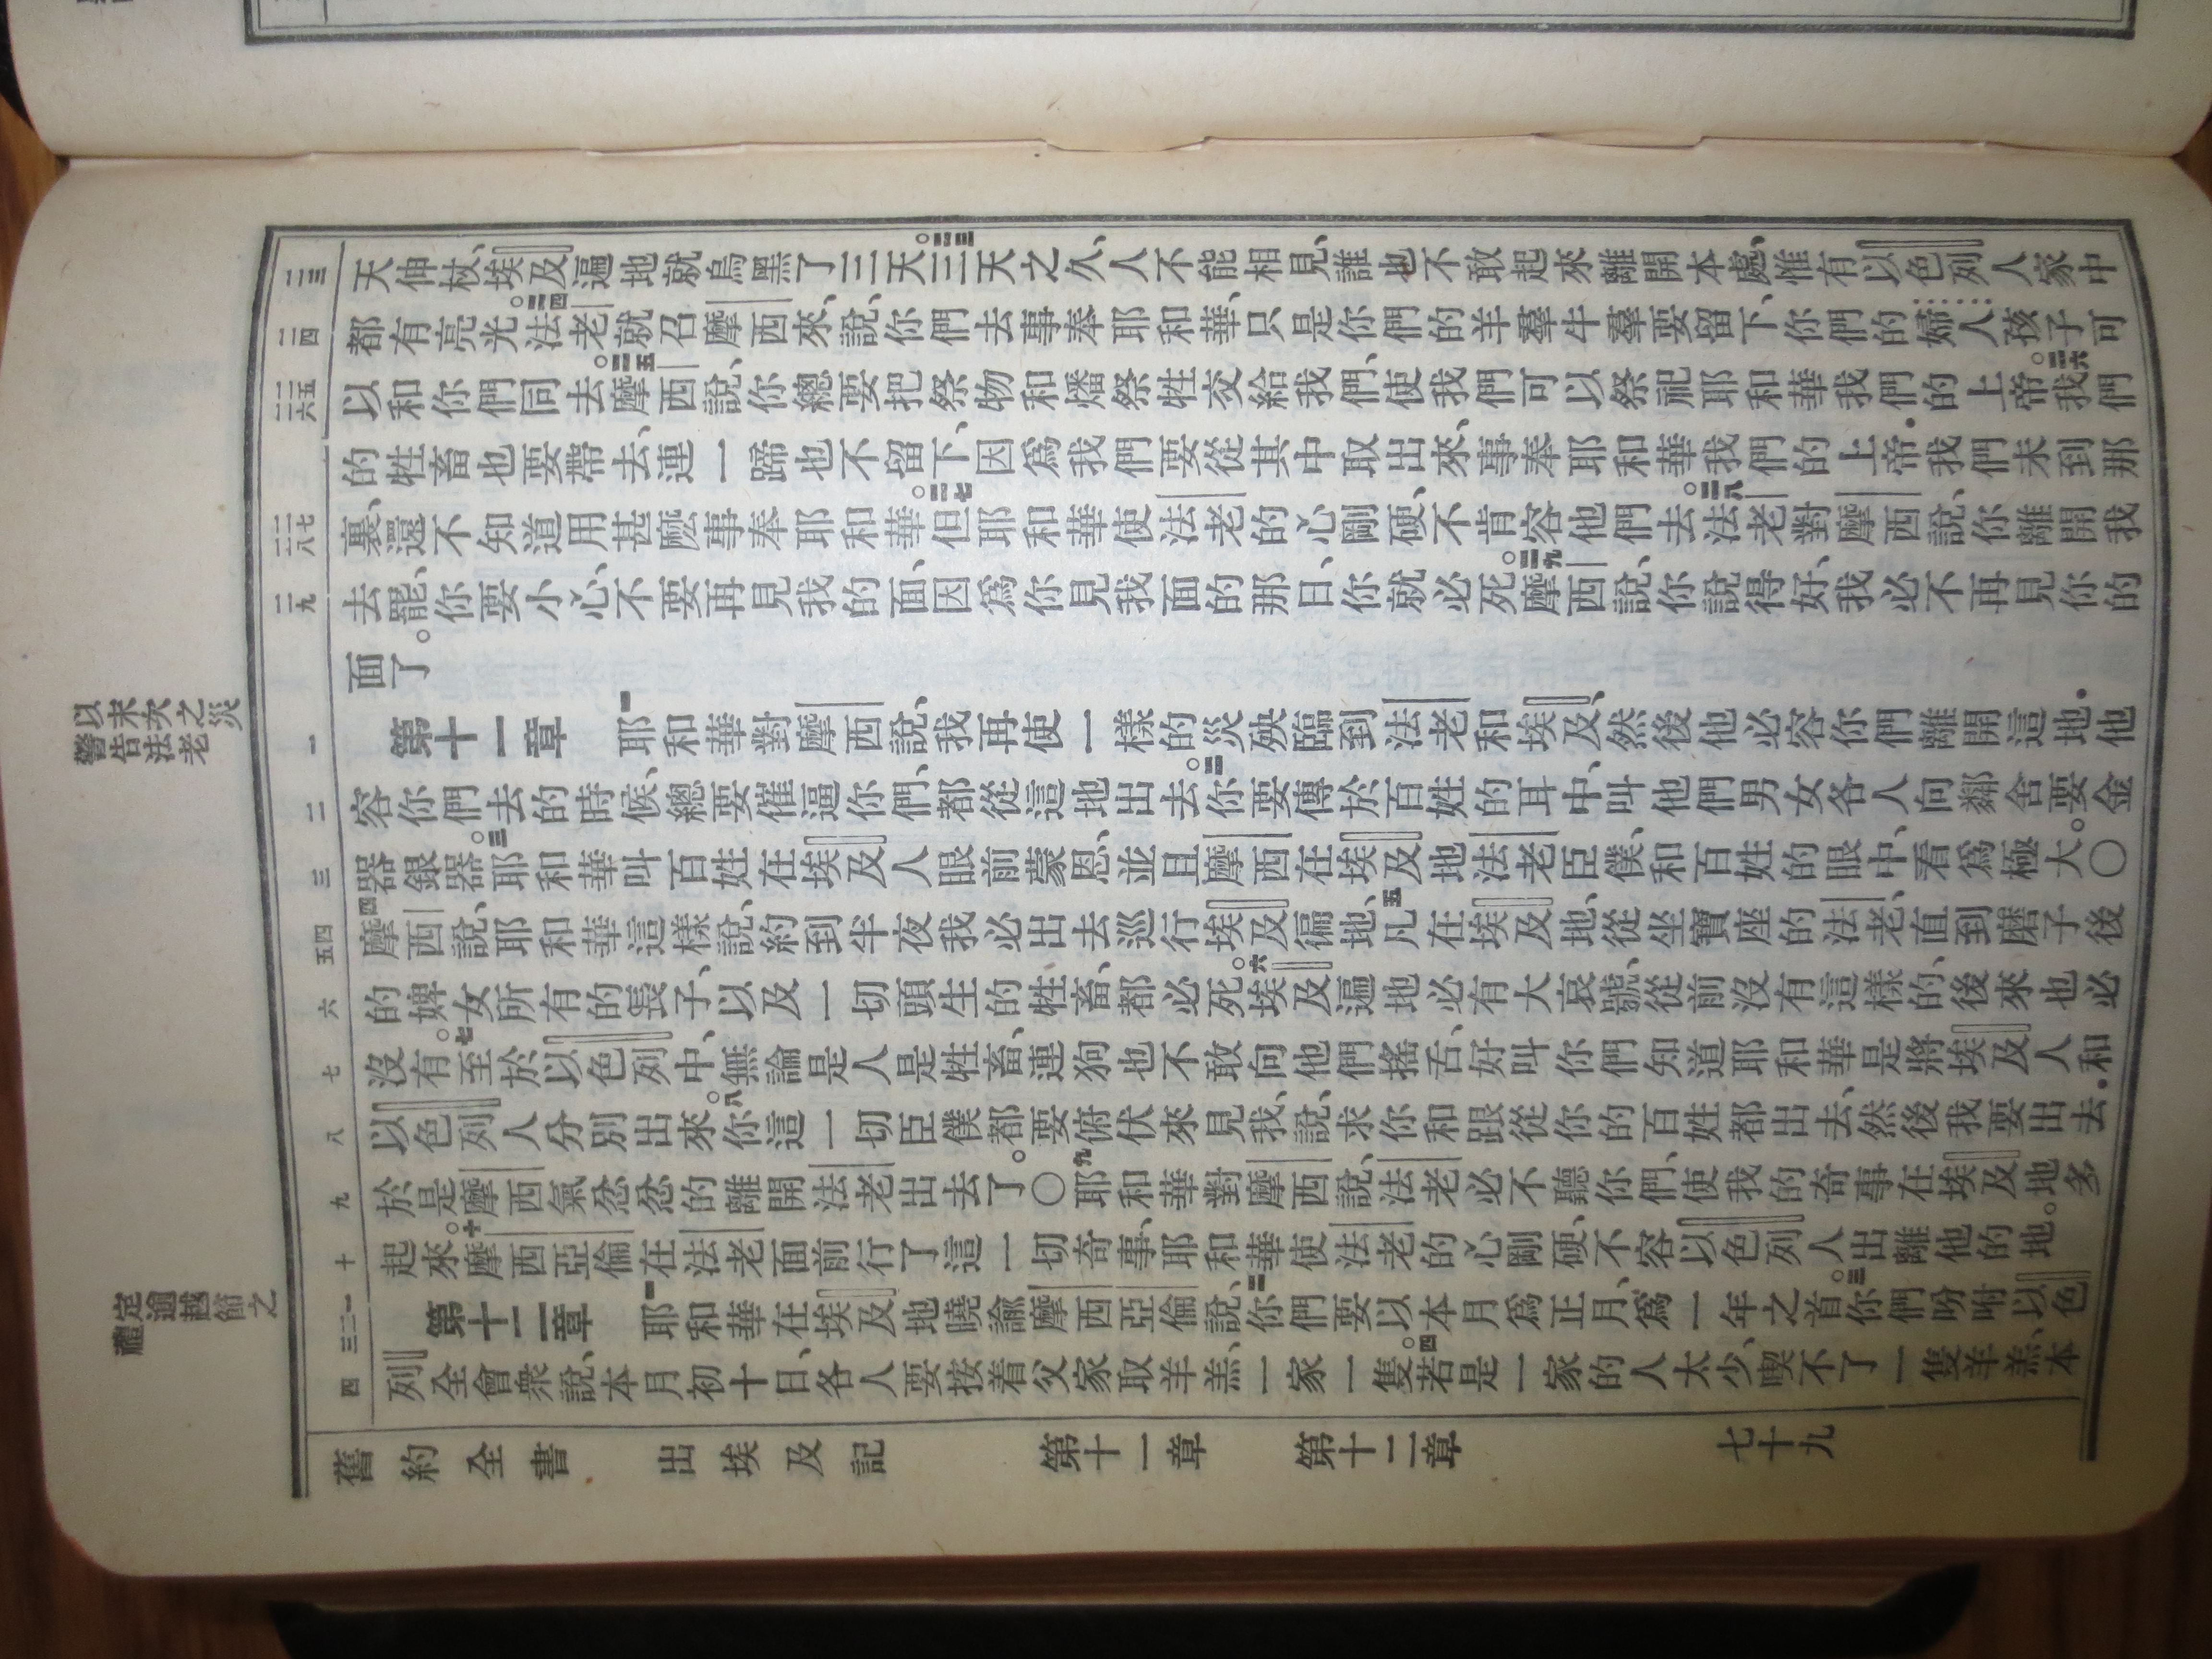 天伸杖、埃及遍地就烏黑了三天。二三三天之久、人不能相見、誰也不敢起來離開本處、惟有以色列人家中
都有亮光。二四法老就召摩西來、說、你們去事奉耶和華、只是你們的羊羣牛羣要留下、你們的婦人孩子可
以和你們同去。二五摩西說、你總要把祭物和燔祭牲交給我們、使我們可以祭祀耶和華我們的上帝。二六我們
的牲畜也要帶去、連一蹄也不留下、因爲我們要從其中取出來、事奉耶和華我們的上帝．我們未到那
裏、還不知道用甚麽事奉耶和華。二七但耶和華使法老的心剛硬、不肯容他們去。二八法老對摩西說、你離開我
去罷、你要小心、不要再見我的面、因爲你見我面的那日、你就必死。二九摩西說、你說得好、我必不再見你的
面了。
第十一章 一耶和華對摩西說、我再使一樣的災殃臨到法老和埃及、然後他必容你們離開這地．他
容你們去的時候、總要催逼你們、都從這地出去。二你要傳於百姓的耳中、叫他們男女各人向鄰舍要金
器銀器。三耶和華叫百姓在埃及人眼前蒙恩、並且摩西在埃及地法老臣僕、和百姓的眼中、看爲極大。○
四摩西說、耶和華這樣說、約到半夜我必出去巡行埃及徧地、五凡在埃及地、從坐寶座的法老、直到磨子後
的婢女所有的長子、以及一切頭生的牲畜、都必死。六埃及遍地必有大哀號、從前沒有這樣的、後來也必
沒有。七至於以色列中、無論是人是牲畜、連狗也不敢向他們搖舌、好叫你們知道耶和華是將埃及人和
以色列人分別出來。八你這一切臣僕都要俯伏來見我、說、求你和跟從你的百姓都出去、然後我要出去．
於是摩西氣忿忿的離開法老出去了。○九耶和華對摩西說、法老必不聽你們、使我的奇事在埃及地多
起來。十摩西亞倫在法老面前行了這一切奇事、耶和華使法老的心剛硬、不容以色列人出離他的地。
第十二章 一耶和華在埃及地曉諭摩西亞倫說、二你們要以本月爲正月、爲一年之首。三你們吩咐以色
列全會衆說、本月初十日、各人要按着父家取羊羔、一家一隻。四若是一家的人太少、喫不了一隻羊羔、本
二三
二四
二五
二六
二七
二八
二九
一
二
三
四
五
六
七
八
九
十
一
二
三
四
以末次之災
警告法老
定逾越節之
禮
舊約全書 出埃及記 第十一章 第十二章 七十九